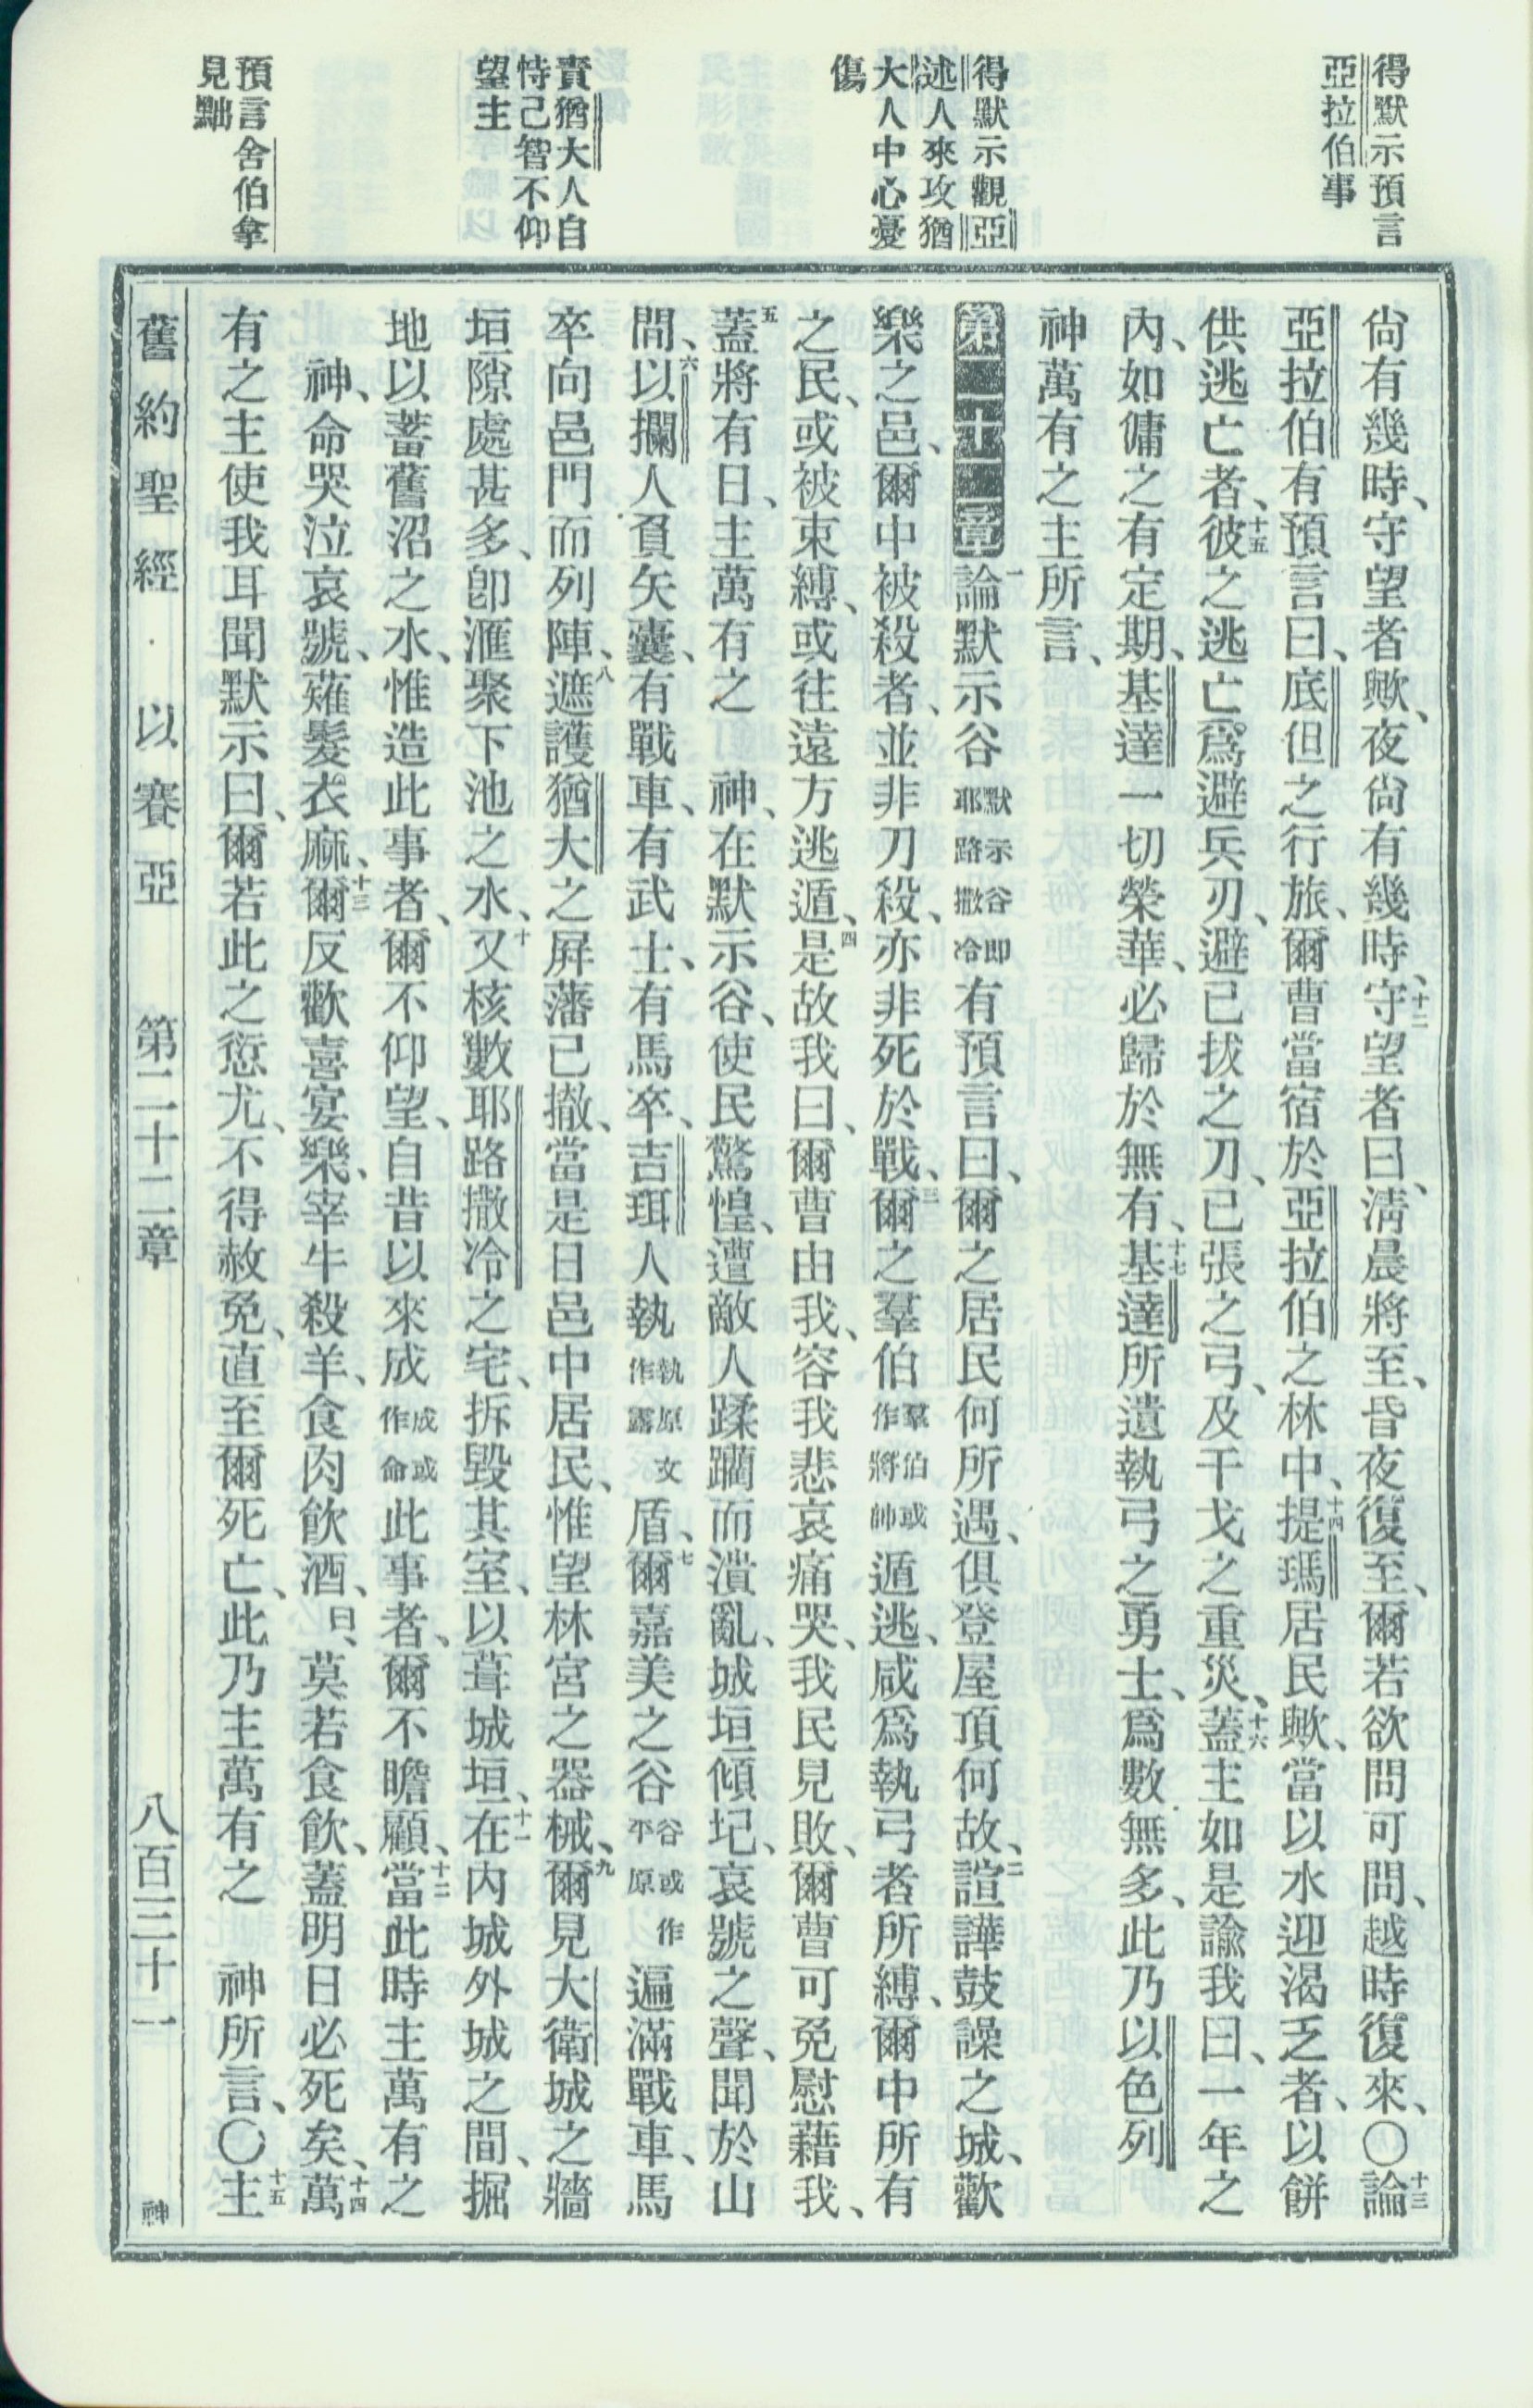 得默示預言
亞拉伯事
得默示觀亞
述人來攻猶
大人中心憂
傷
責猶大人自
恃己智不仰
望主
預言舍伯拿
見黜
尙有幾時、守望者歟、夜尙有幾時、十二守望者曰、淸晨將至、昏夜復至、爾若欲問可問、越時復來、〇十三論
亞拉伯有預言曰、底但之行旅、爾曹當宿於亞拉伯之林中、十四提瑪居民歟、當以水迎渴乏者、以餅
供逃亡者、十五彼之逃亡、爲避兵刃、避已拔之刀、已張之弓、及干戈之重災、十六蓋主如是諭我曰、一年之
內、如傭之有定期、基達一切榮華、必歸於無有、十七基達所遺執弓之勇士、爲數無多、此乃以色列
神萬有之主所言、
第二十二章 一論默示谷默示谷即耶路撒冷有預言曰、爾之居民何所遇、俱登屋頂何故、二諠譁鼓譟之城、歡
樂之邑、爾中被殺者、並非刀殺、亦非死於戰、三爾之羣伯羣伯或作將帥遁逃、咸爲執弓者所縛、爾中所有
之民、或被束縛、或往遠方逃遁、四是故我曰、爾曹由我、容我悲哀痛哭、我民見敗、爾曹可免慰藉我、
五蓋將有日、主萬有之 神、在默示谷、使民驚惶、遭敵人蹂躪而潰亂、城垣傾圮、哀號之聲、聞於山
間、六以攔人負矢囊、有戰車、有武士、有馬卒、吉珥人執執原文作露盾、七爾嘉美之谷谷或作平原遍滿戰車、馬
卒向邑門而列陣、八遮護猶大之屛藩已撤、當是日邑中居民、惟望林宮之器械、九爾見大衛城之牆
垣隙處甚多、卽滙聚下池之水、十又核數耶路撒冷之宅、拆毀其室、以葺城垣、十一在內城外城之間、掘
地以蓄舊沼之水、惟造此事者、爾不仰望、自昔以來成成或作命此事者、爾不瞻顧、十二當此時主萬有之
神、命哭泣哀號、薙髮衣麻、十三爾反歡喜宴樂、宰牛殺羊、食肉飮酒、曰、莫若食飮、蓋明日必死矣、十四萬
有之主使我耳聞默示曰、爾若此之愆尤、不得赦免、直至爾死亡、此乃主萬有之 神所言、〇十五主
舊約聖經 以賽亞 第二十二章 八百三十一 神